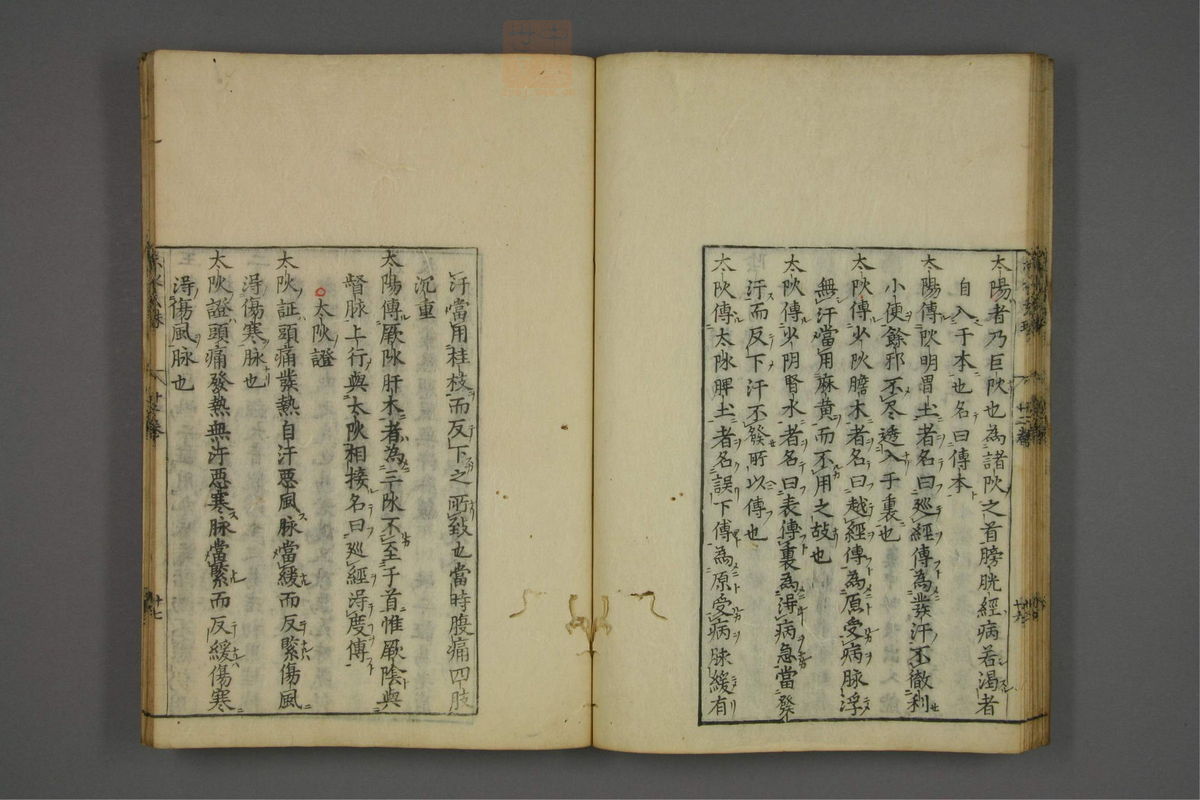 太陽者乃巨阦也為諸阦之首膀胱經病若渴者
自入于本也名曰傳本
太陽傳阦明胃土者名曰廵經傳為發汗不徹利
小便餘邪不尽透入于裏也
太阦傳少阦膽木者名曰越經傳為原受病脉浮
無汗當用麻黄而不用之故也
太阦傳少阴腎水者名曰表傳裏為得病急當發
汗而反下汗不發所以傳也
太阦傳太阥脾土者名誤下傳為原受病脉緩有
汗當用桂枝而反下之所致也當時腹痛四肢
沉重
太陽傳厥阥肝木者為三阥不至于首惟厥陰與
督脉上行與太阦相接名曰廵經得度傳
太阦證
太阦証頭痛發熱自汗惡風脉當緩而反緊傷風
得傷寒脉也
太阦證頭痛發熱無汗惡寒脉當緊而反緩傷寒
得傷風脉也
十七